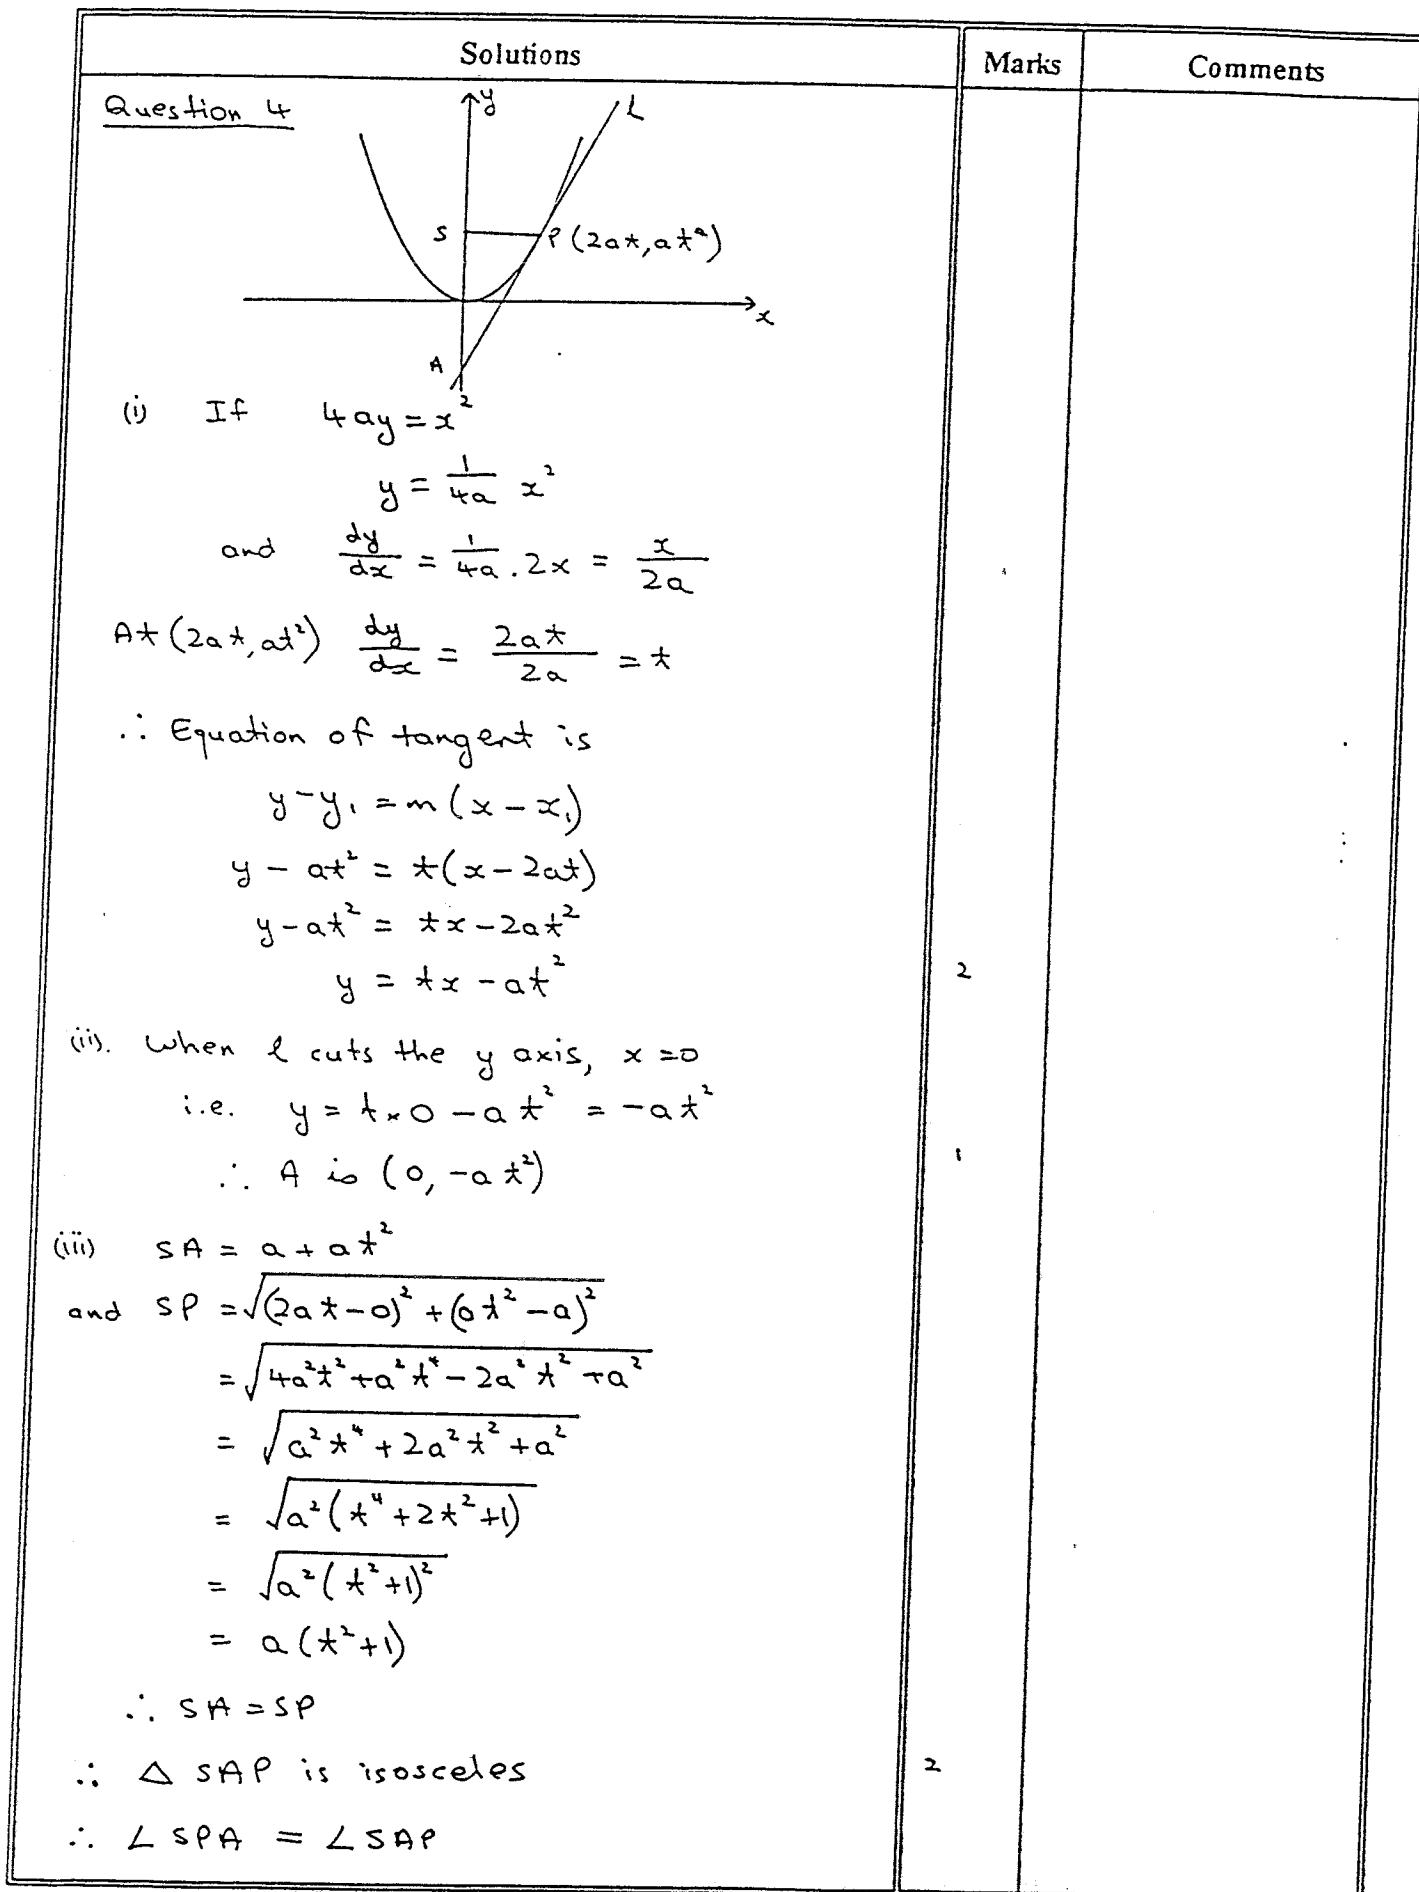 Solutions
Marks
Comments
Question 4
y
L
S
P (2at, at²)
x
A
(i) If 4ay = x²
y = 1/4a x²
and dy/dx = 1/4a . 2x = x/2a
At (2at, at²) dy/dx = 2at/2a = t
∴ Equation of tangent is
y - y₁ = m(x - x₁)
y - at² = t(x - 2at)
y - at² = tx - 2at²
y = tx - at²
2
(ii). When l cuts the y axis, x = 0
i.e. y = t × 0 - at² = -at²
∴ A is (0, -at²)
1
(iii) SA = a + at²
and SP = √((2at - 0)² + (at² - a)²)
= √(4a²t² + a²t⁴ - 2a²t² + a²)
= √(a²t⁴ + 2a²t² + a²)
= √(a²(t⁴ + 2t² + 1))
= √(a²(t² + 1)²)
= a(t² + 1)
∴ SA = SP
∴ △ SAP is isosceles
2
∴ ∠SPA = ∠SAP